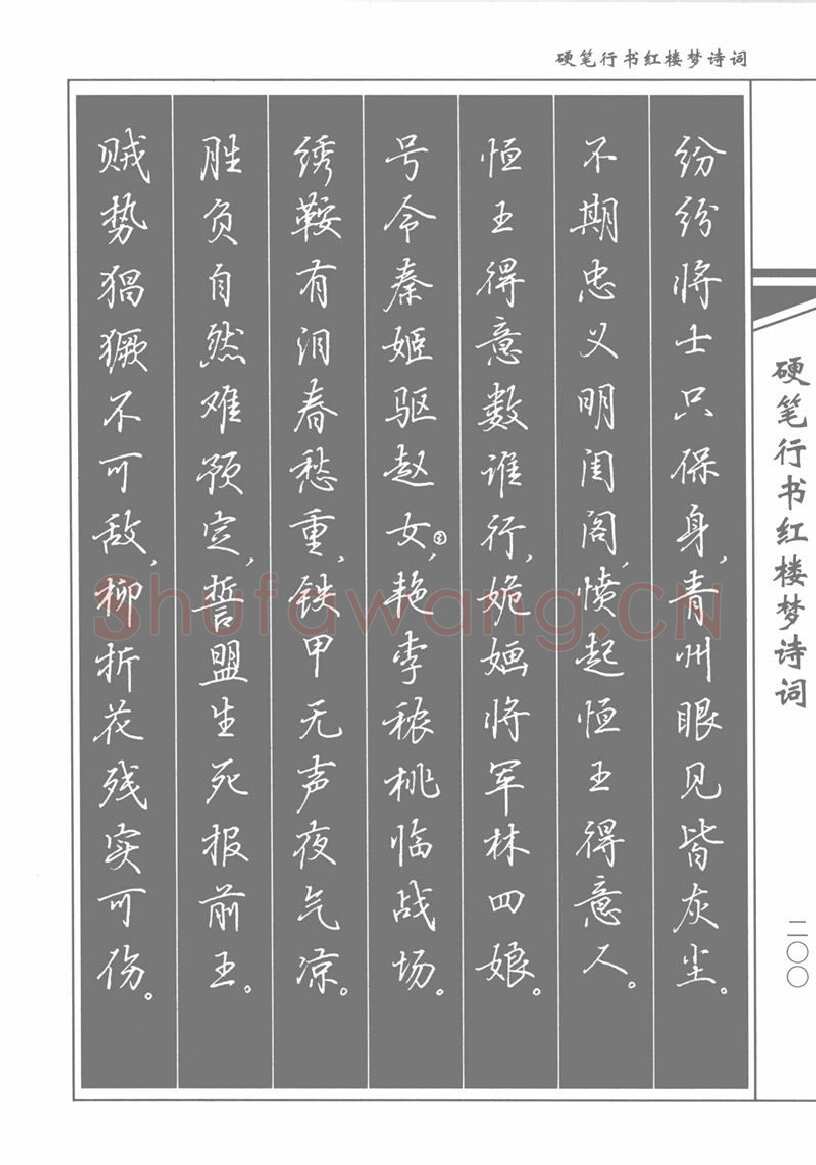 硬笔行书红楼梦诗词
纷纷将士只保身，青州眼见皆灰尘。
不期忠义明闺阁，愤起恒王得意人。
恒王得意数谁行，姽婳将军林四娘。
号令秦姬驱赵女②，艳李秾桃临战场。
绣鞍有泪春愁重，铁甲无声夜气凉。
胜负自然难预定，誓盟生死报前王。
贼势猖獗不可敌，柳折花残实可伤。
硬笔行书红楼梦诗词
二〇〇
Shufawang.CN